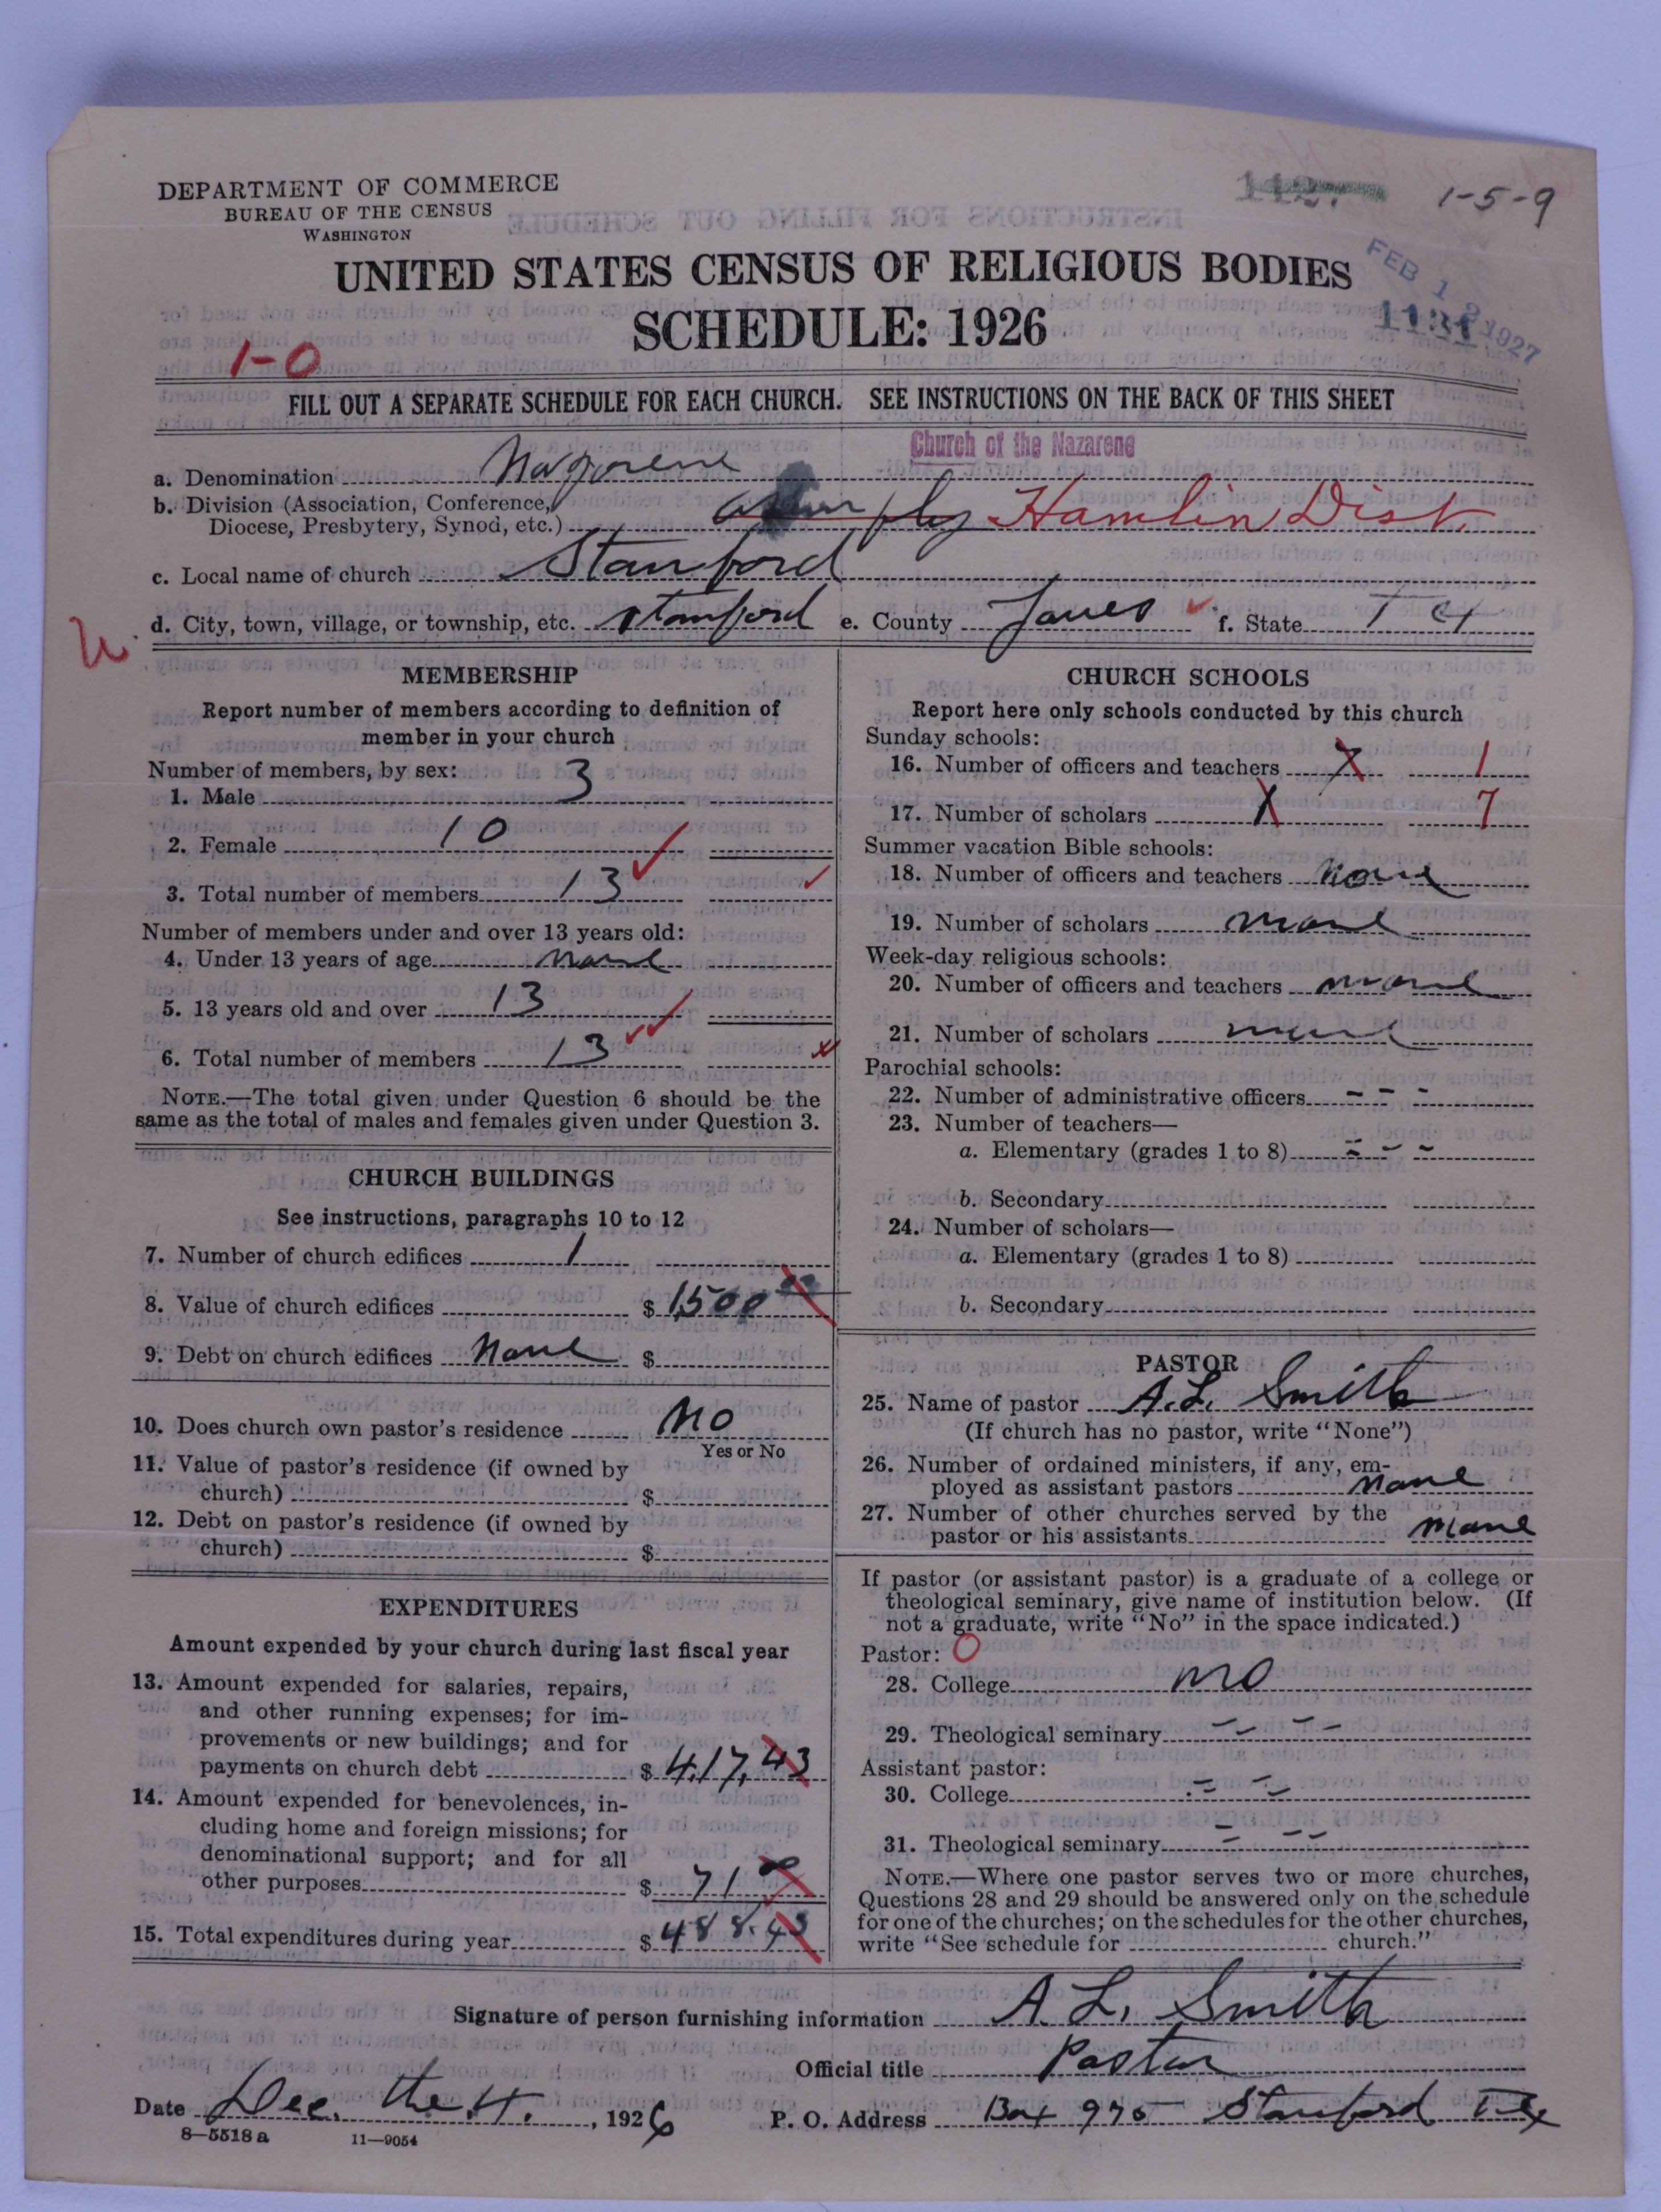 DEPARTMENT OF COMMERCE
BUREAU OF THE CENSUS
WASHINGTON
112.
1-5-9
UNITED STATES CENSUS OF RELIGIOUS BODIES
FEB 12 1927
SCHEDULE: 1926
1-0
FILL OUT A SEPARATE SCHEDULE FOR EACH CHURCH. SEE INSTRUCTIONS ON THE BACK OF THIS SHEET
Church of the Nazarene
a. Denomination Nazarene
b. Division (Association, Conference,
Diocese, Presbytery, Synod, etc.) Hamlin Dist.
c. Local name of church Stamford
d. City, town, village, or township, etc. Stamford e. County Jones f. State Tex
MEMBERSHIP
Report number of members according to definition of
member in your church
Number of members, by sex:
1. Male 3
2. Female 10
3. Total number of members 13
Number of members under and over 13 years old:
4. Under 13 years of age None
5. 13 years old and over 13
6. Total number of members 13
NOTE.—The total given under Question 6 should be the
same as the total of males and females given under Question 3.
CHURCH BUILDINGS
See instructions, paragraphs 10 to 12
7. Number of church edifices 1
8. Value of church edifices $ 1500 00
9. Debt on church edifices None $
10. Does church own pastor's residence No
Yes or No
11. Value of pastor's residence (if owned by
church) $
12. Debt on pastor's residence (if owned by
church) $
EXPENDITURES
Amount expended by your church during last fiscal year
13. Amount expended for salaries, repairs,
and other running expenses; for im-
provements or new buildings; and for
payments on church debt $ 417,43
14. Amount expended for benevolences, in-
cluding home and foreign missions; for
denominational support; and for all
other purposes $ 71 00
15. Total expenditures during year $ 488.43
CHURCH SCHOOLS
Report here only schools conducted by this church
Sunday schools:
16. Number of officers and teachers X 1
17. Number of scholars X 7
Summer vacation Bible schools:
18. Number of officers and teachers None
19. Number of scholars none
Week-day religious schools:
20. Number of officers and teachers none
21. Number of scholars none
Parochial schools:
22. Number of administrative officers - - -
23. Number of teachers—
a. Elementary (grades 1 to 8) = - -
b. Secondary
24. Number of scholars—
a. Elementary (grades 1 to 8)
b. Secondary
PASTOR
25. Name of pastor A.L. Smith
(If church has no pastor, write "None")
26. Number of ordained ministers, if any, em-
ployed as assistant pastors None
27. Number of other churches served by the
pastor or his assistants None
If pastor (or assistant pastor) is a graduate of a college or
theological seminary, give name of institution below. (If
not a graduate, write "No" in the space indicated.)
Pastor: 0
28. College no
29. Theological seminary - - - -
Assistant pastor:
30. College = =
31. Theological seminary = - -
NOTE.—Where one pastor serves two or more churches,
Questions 28 and 29 should be answered only on the schedule
for one of the churches; on the schedules for the other churches,
write "See schedule for church."
Signature of person furnishing information A. L. Smith
Official title Pastor
Date Dec. the 4. , 1926 P. O. Address Box 975 Stamford Tex
8—5518 a 11—9054